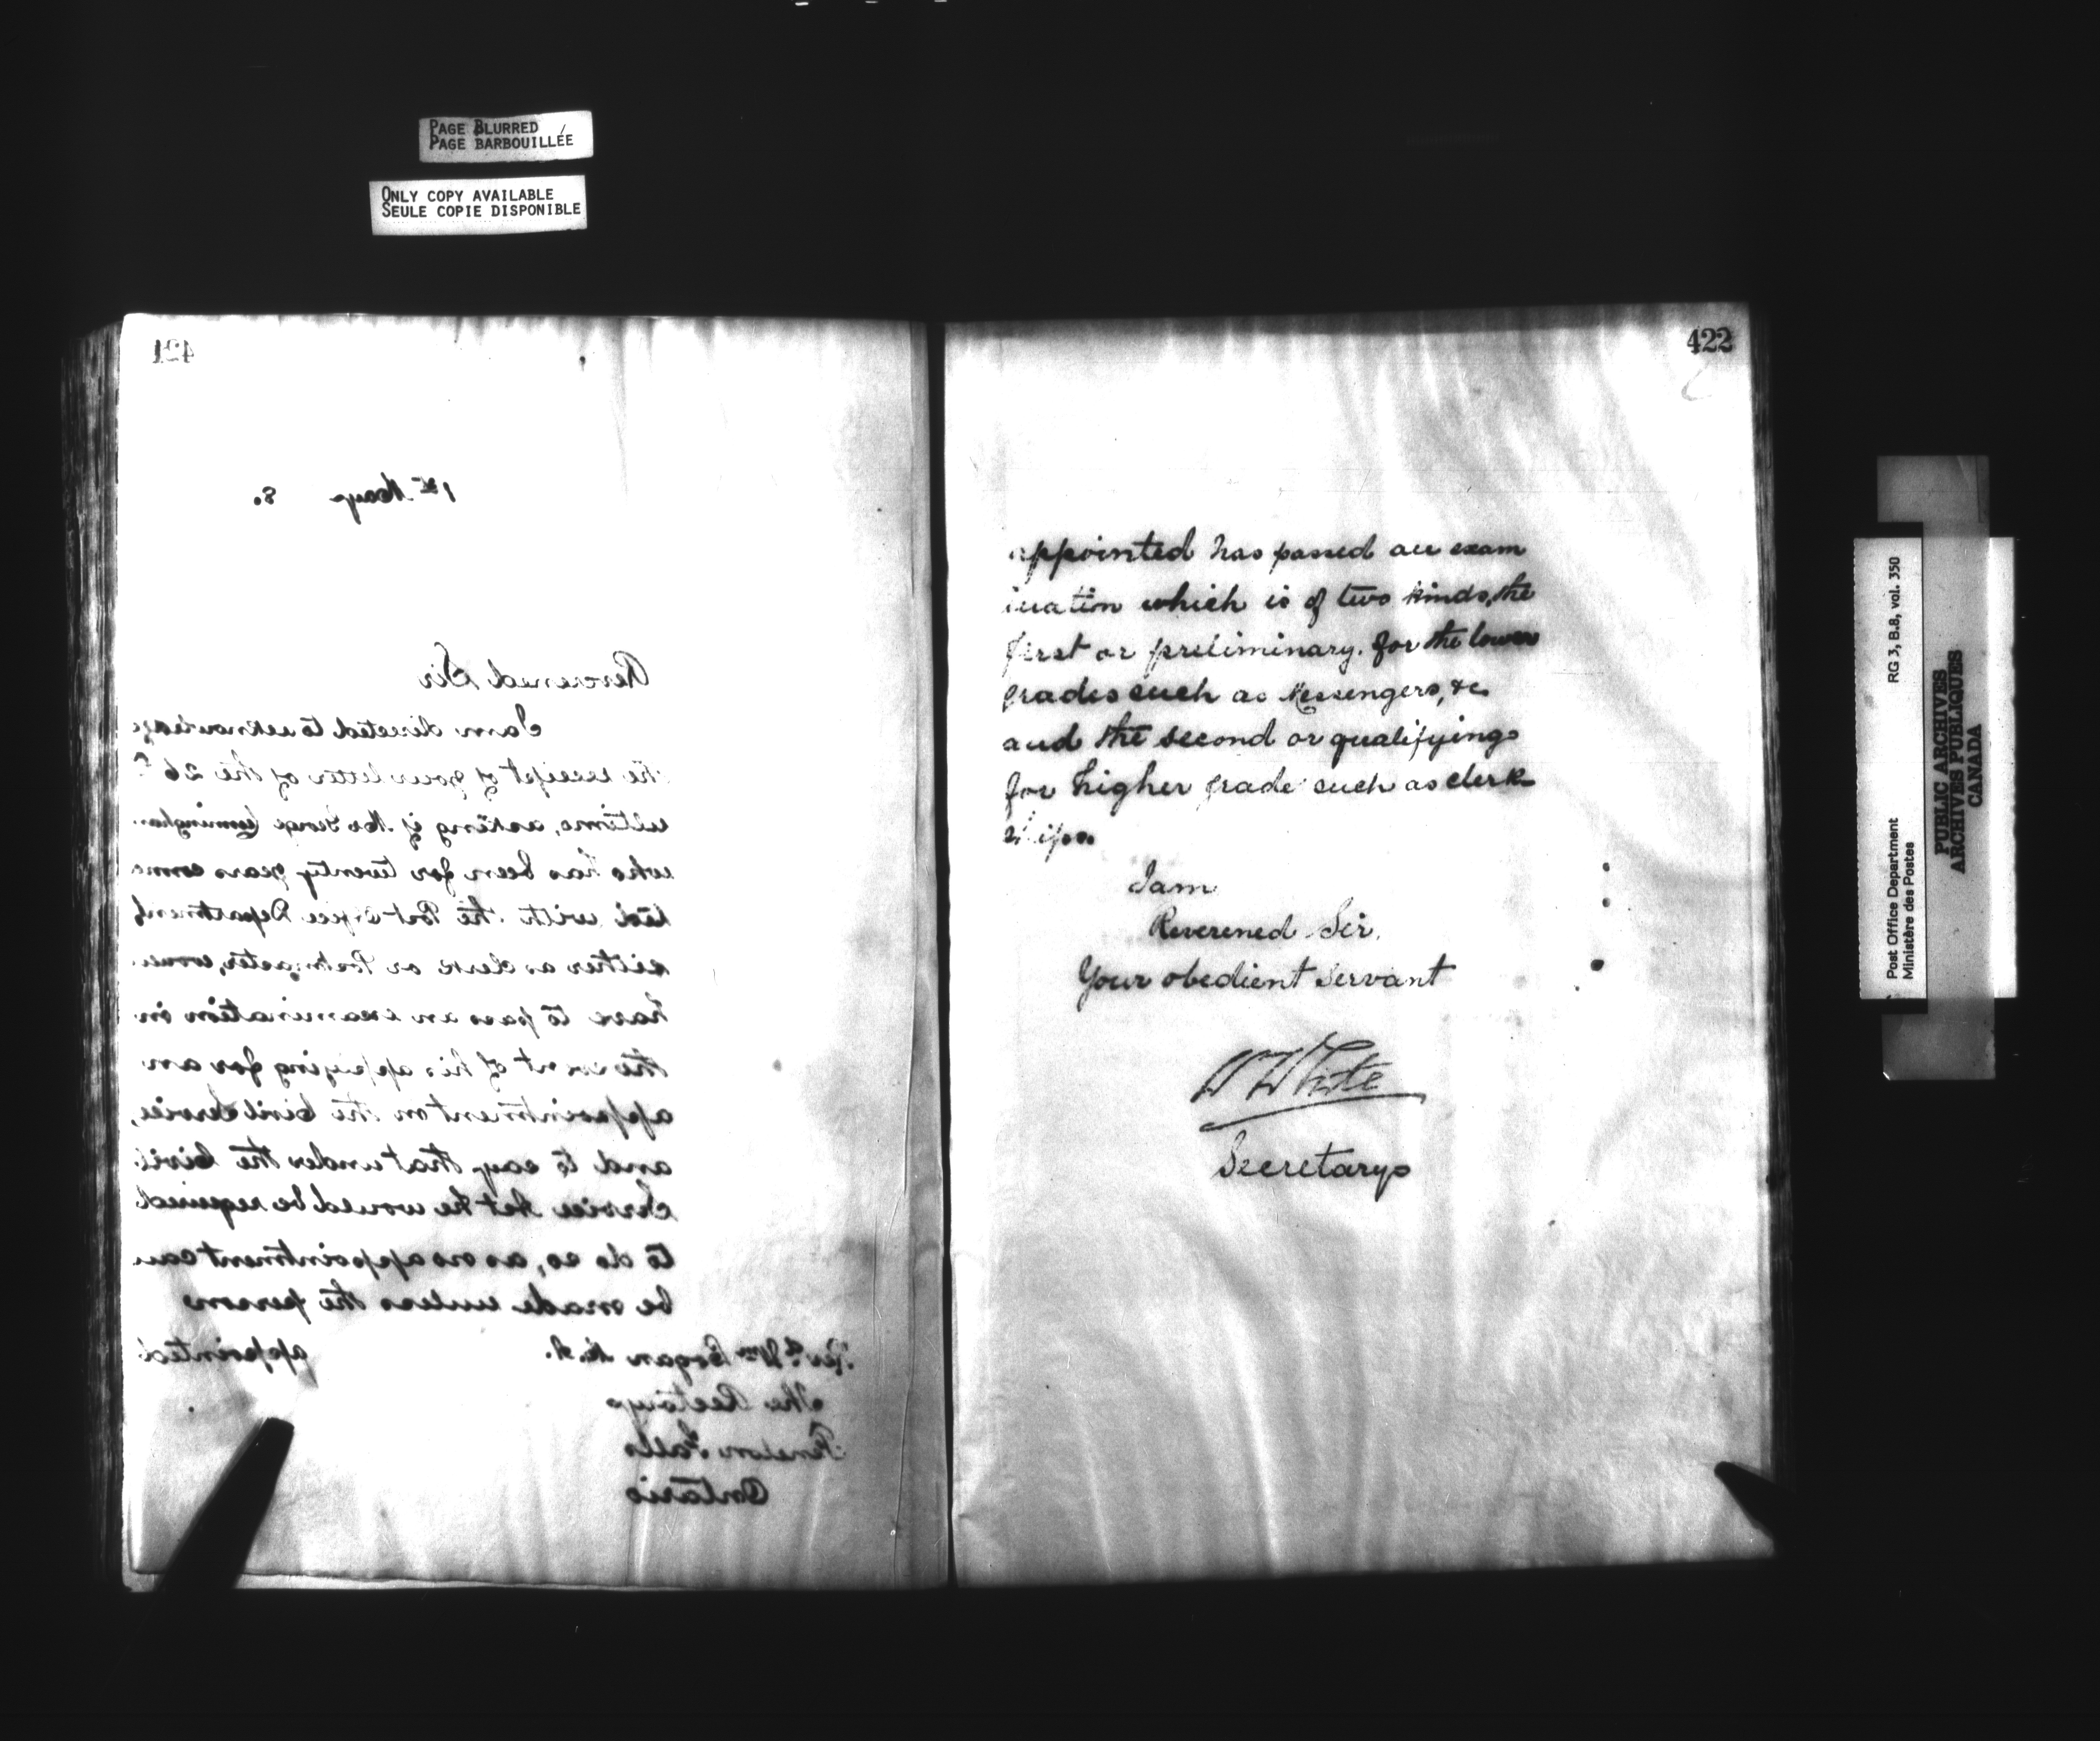 PAGE BLURRED
PAGE BARBOUILLÉE
ONLY COPY AVAILABLE
SEULE COPIE DISPONIBLE
421
1st May 8.
Reverened Sir
I am directed to acknowledge
the receipt of your letter of the 26th
ultimo, asking if Mr George Cunningham
who has been for twenty years connec
ted with the Post Office Department
either as clerk or Postmaster, would
have to pass an examination in
the event of his applying for an
appointment on the Civil Service,
and to say that under the Civil
Service Act he would be required
to do so, as no appointment can
be made unless the person
appointed
Revd. Wm Logan M.A.
The Rectory
Fenelon Falls
Ontario
422
appointed has passed an exam
ination which is of two kinds, the
first or preliminary. for the lower
grades such as Messengers, &c
and the second or qualifying
for higher grade such as clerk
ships.
I am
Reverened Sir,
Your obedient Servant
W White
Secretary
Post Office Department
Ministère des Postes
RG 3, B.8, vol. 350
PUBLIC ARCHIVES
ARCHIVES PUBLIQUES
CANADA